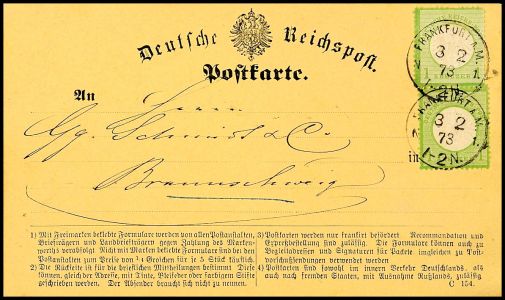 Deutsche Reichspost.
Postkarte.
An Herren
Gg. Schmidt & Co.
in
Braunschweig
1) Mit Freimarken beklebte Formulare werden von allen Postanstalten,
Briefträgern und Landbriefträgern gegen Zahlung des Marken-
werths verabfolgt. Nicht mit Marken beklebte Formulare sind bei den
Postanstalten zum Preise von ¼ Groschen für je 5 Stück käuflich.
2) Die Rückseite ist für die brieflichen Mittheilungen bestimmt. Diese
können, gleich der Adresse, mit Tinte, Bleifeder oder farbigem Stifte
geschrieben werden. Der Absender braucht sich nicht zu nennen.
3) Postkarten werden nur frankirt befördert. Recommandation und
Expreßbestellung sind zulässig. Die Formulare können auch zu
Begleitadressen und Signaturen für Packete imgleichen zu Post-
vorschußsendungen verwendet werden.
4) Postkarten sind sowohl im innern Verkehr Deutschlands, als
auch nach fremden Staaten, mit Ausnahme Rußlands, zulässig.
C 154.
FRANKFURT A.M.
3 2
73
1-2N.
1.
FRANKFURT A.M.
3 2
73
1-2N.
1.
1
KREUZER